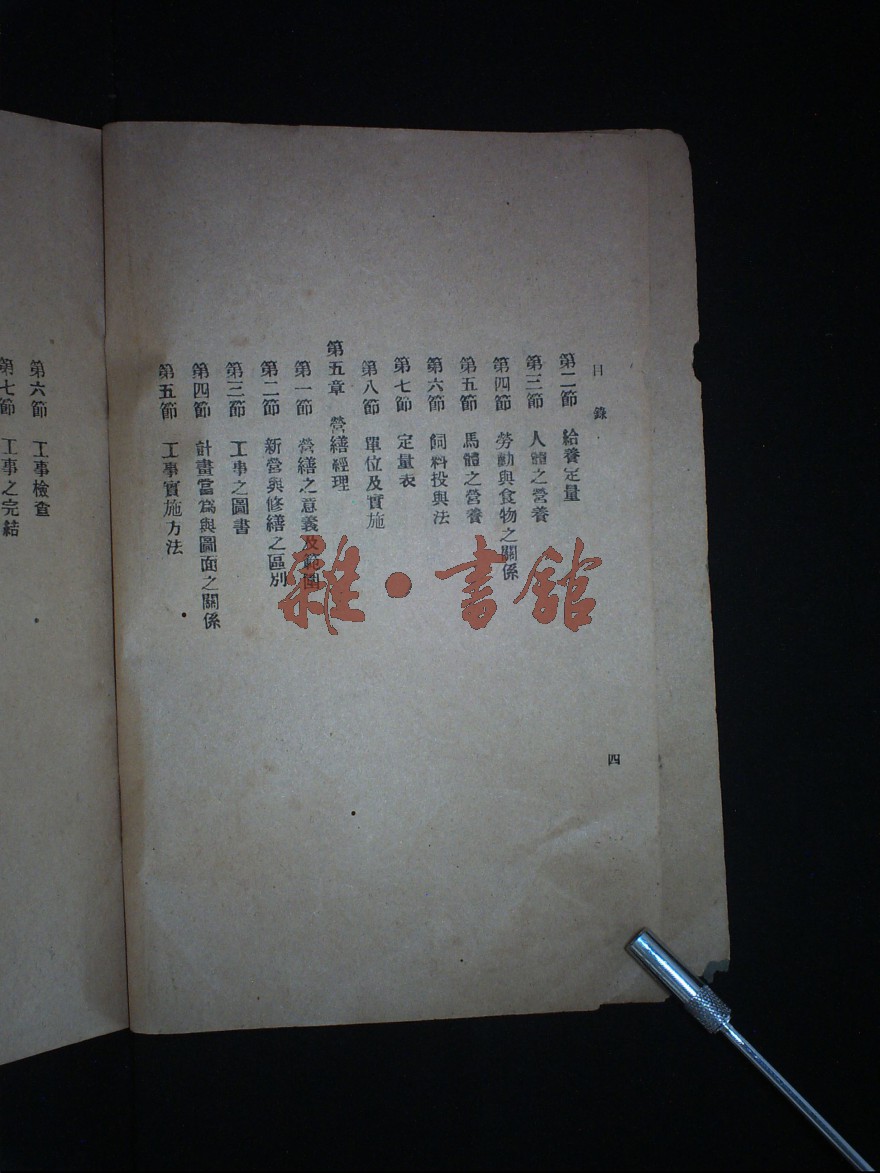 目錄
第二節 給養定量
第三節 人體之營養
第四節 勞動與食物之關係
第五節 馬體之營養
第六節 飼料投與法
第七節 定量表
第八節 單位及實施
第五章 營繕經理
第一節 營繕之意義及範圍
第二節 新營與修繕之區別
第三節 工事之圖書
第四節 計畫當爲與圖面之關係
第五節 工事實施方法
四
第六節 工事檢查
第七節 工事之完結
雜·書館